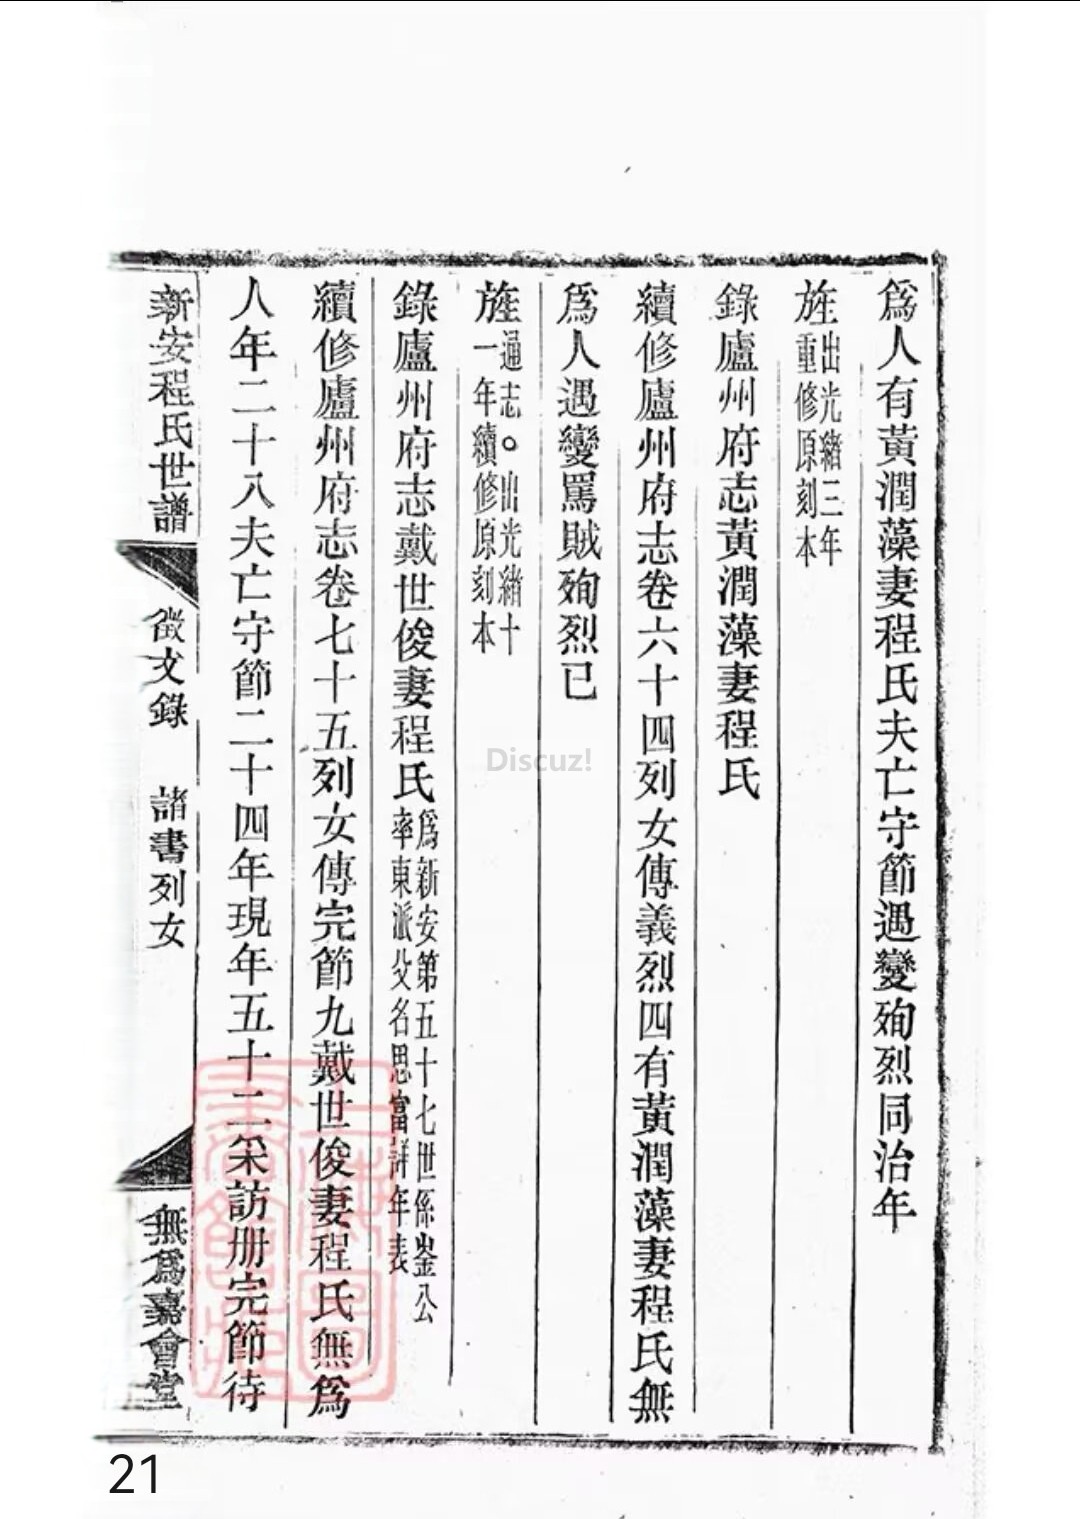 爲人有黃潤藻妻程氏夫亡守節遇變殉烈同治年
旌出光緒三年重修原刻本
錄廬州府志黃潤藻妻程氏
續修廬州府志卷六十四列女傳義烈四有黃潤藻妻程氏無
爲人遇變罵賊殉烈已
旌通志。出光緒十一年續修原刻本
錄廬州府志戴世俊妻程氏爲新安第五十七世係崟公率東派父名思富詳年表
續修廬州府志卷七十五列女傳完節九戴世俊妻程氏無爲
人年二十八夫亡守節二十四年現年五十二采訪册完節待
新安程氏世譜
徵文錄 諸書列女
無爲嘉會堂
上海圖書館藏
Discuz!
21